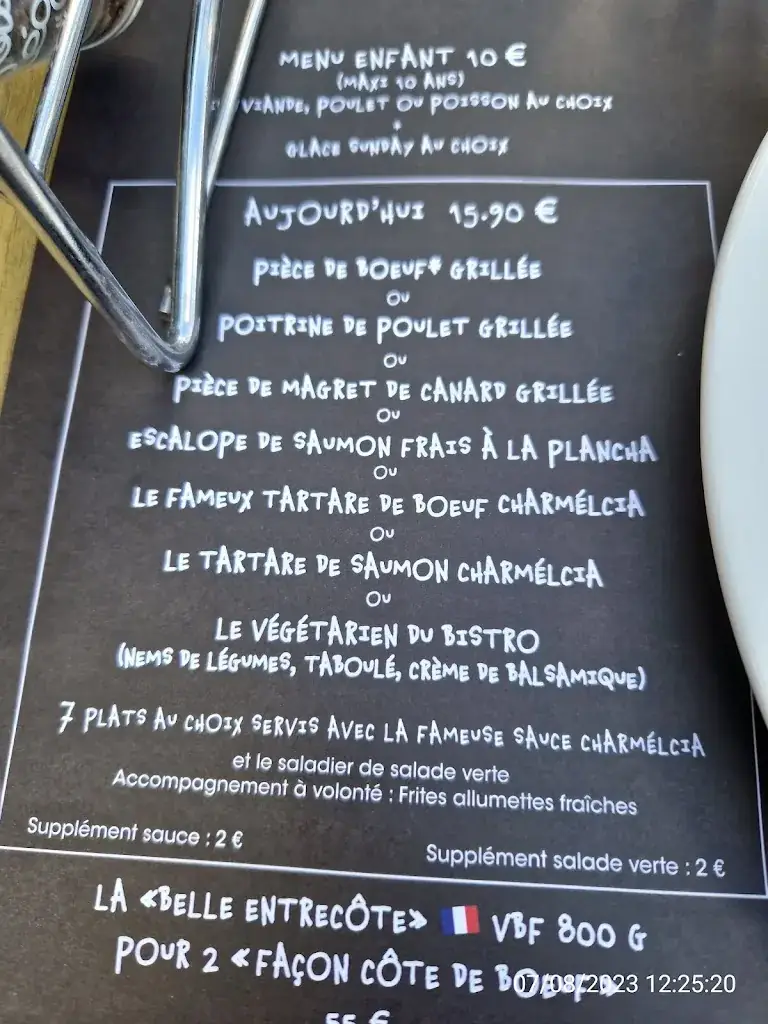 MENU ENFANT 10 €
(MAXI 10 ANS)
VIANDE, POULET OU POISSON AU CHOIX
+
GLACE SUNDAY AU CHOIX
AUJOURD'HUI 15.90 €
PIÈCE DE BOEUF* GRILLÉE
OU
POITRINE DE POULET GRILLÉE
OU
PIÈCE DE MAGRET DE CANARD GRILLÉE
OU
ESCALOPE DE SAUMON FRAIS À LA PLANCHA
OU
LE FAMEUX TARTARE DE BOEUF CHARMÉLCIA
OU
LE TARTARE DE SAUMON CHARMÉLCIA
OU
LE VÉGÉTARIEN DU BISTRO
(NEMS DE LÉGUMES, TABOULÉ, CRÈME DE BALSAMIQUE)
7 PLATS AU CHOIX SERVIS AVEC LA FAMEUSE SAUCE CHARMÉLCIA
et le saladier de salade verte
Accompagnement à volonté : Frites allumettes fraîches
Supplément sauce : 2 €
Supplément salade verte : 2 €
LA «BELLE ENTRECÔTE» VBF 800 G
POUR 2 «FAÇON CÔTE DE BOEUF»
55 €
07/08/2023 12:25:20